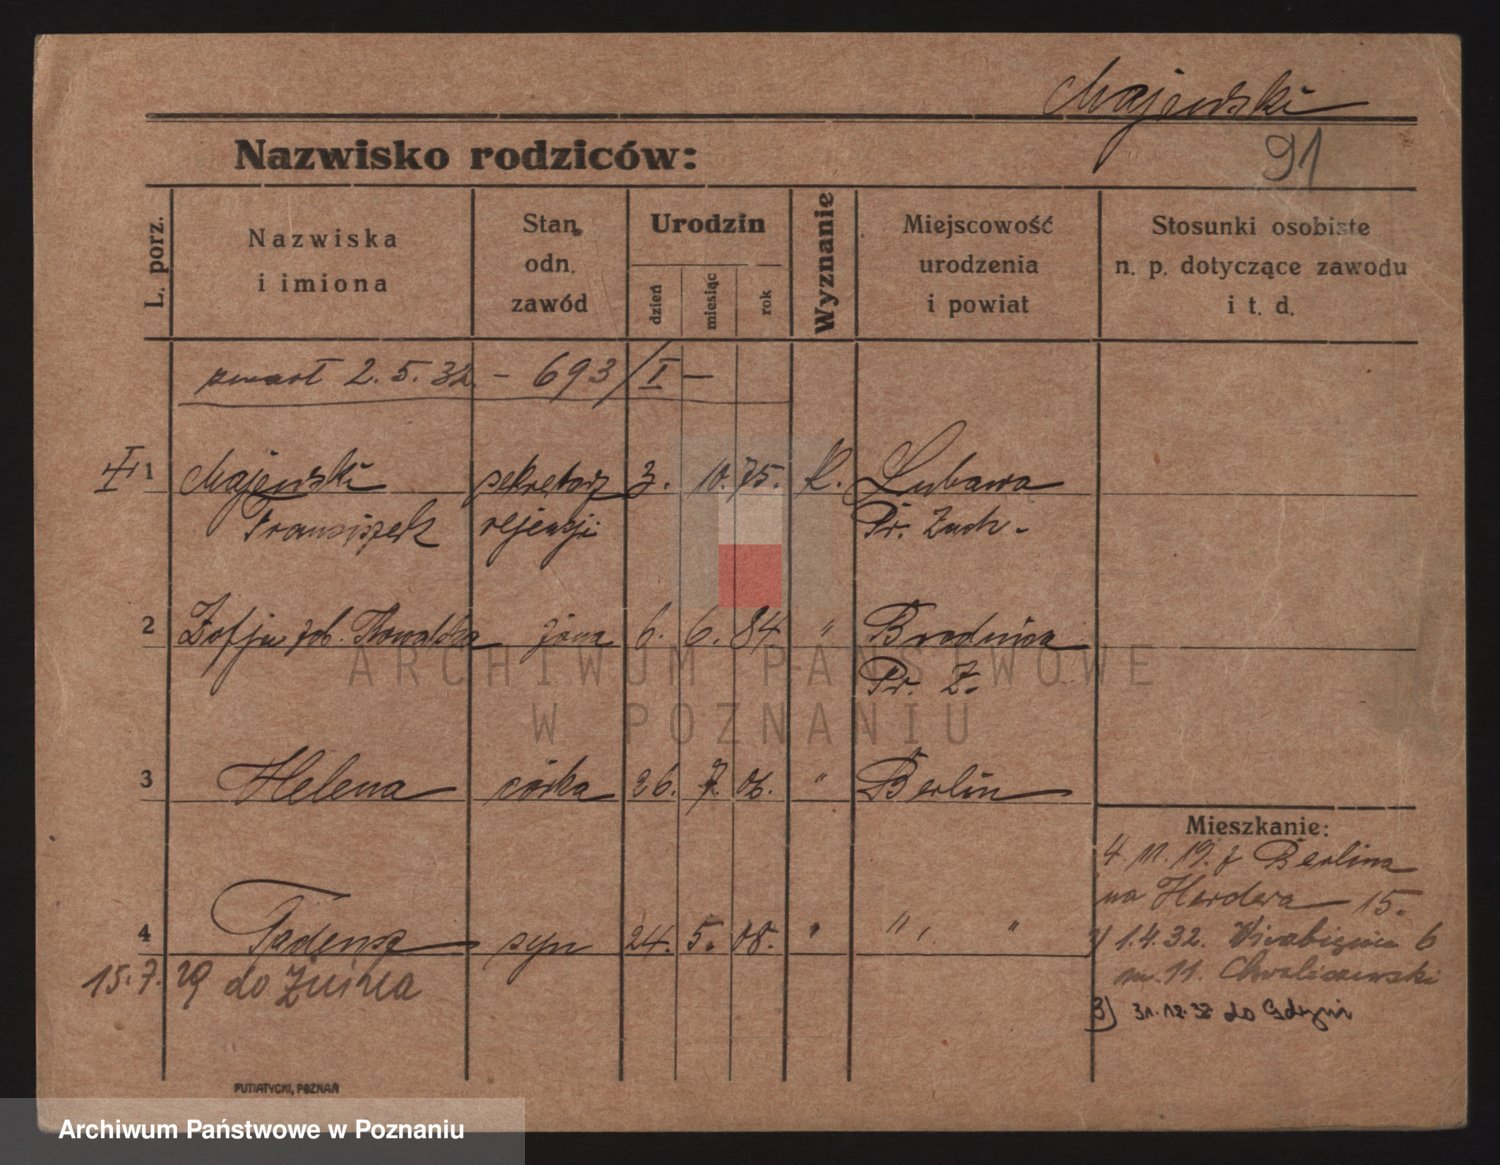 Majewski
91
Nazwisko rodziców:
L. porz.
Nazwiska
i imiona
Stan
odn.
zawód
Urodzin
dzień
miesiąc
rok
Wyznanie
Miejscowość
urodzenia
i powiat
Stosunki osobiste
n. p. dotyczące zawodu
i t. d.
zmarł 2.5.32 - 693/I -
1 Majewski sekretarz 3. 10. 75. K. Lubawa
Franciszek rejencji Pr. Zach.
2 Zofja Kowalska żona 6. 6. 84. " Brodnica
Pr. Z.
3 Helena córka 26. 7. 06. " Berlin
4 Tadeusz syn 24. 5. 08. " " "
15.7.29 do
Mieszkanie:
4.11.19. z Berlina
na Herdera 15.
1.4.32. 6
m. 11. Chwaliszewski
3) do Gdyni
PUTIATYCKI, POZNAŃ
ARCHIWUM PAŃSTWOWE
W POZNANIU
Archiwum Państwowe w Poznaniu